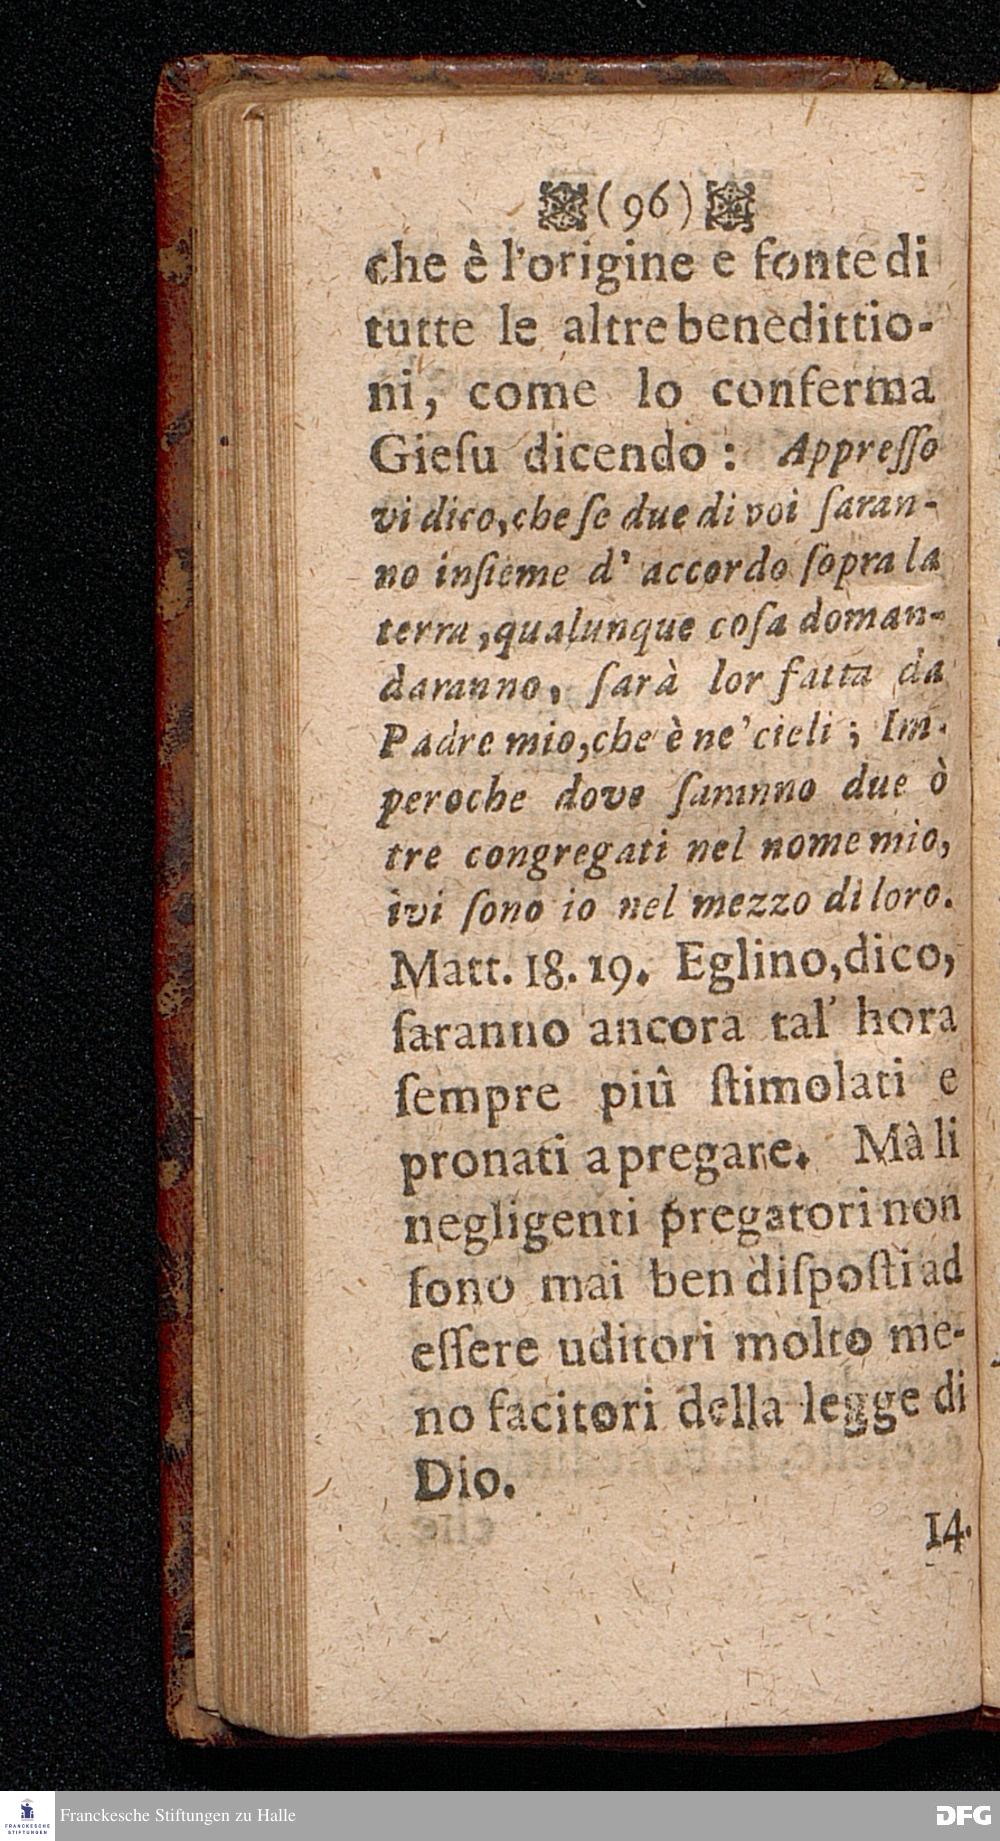 (96)
che è l'origine e fonte di
tutte le altre benedittio-
ni, come lo conferma
Gieſu dicendo: Appreſſo
vi dico, che ſe due di voi ſaran-
no inſieme d' accordo ſopra la
terra, qualunque coſa doman-
daranno, ſarà lor fatta da
Padre mio, che è ne' cieli; Im-
peroche dove ſarannno due ò
tre congregati nel nome mio,
ivi ſono io nel mezzo di loro.
Matt. 18. 19. Eglino, dico,
ſaranno ancora tal' hora
ſempre piû ſtimolati e
pronati a pregare. Mà li
negligenti pregatori non
ſono mai ben diſpoſti ad
eſſere uditori molto me-
no facitori della legge di
Dio.
14.
FRANCKESCHE
STIFTUNGEN
Franckesche Stiftungen zu Halle
DFG